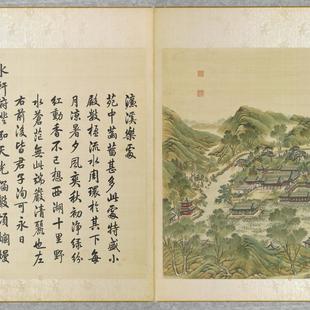 濂溪樂處
苑中菡萏甚多此處特盛小
殿數楹流水周環於其下每
月涼暑夕風爽秋初淨綠紛
紅動香不已想西湖十里野
水蒼茫無此端嚴清麗也左
右前後皆君子洵可永日
水軒俯澄泓天光涵數頃爛熳